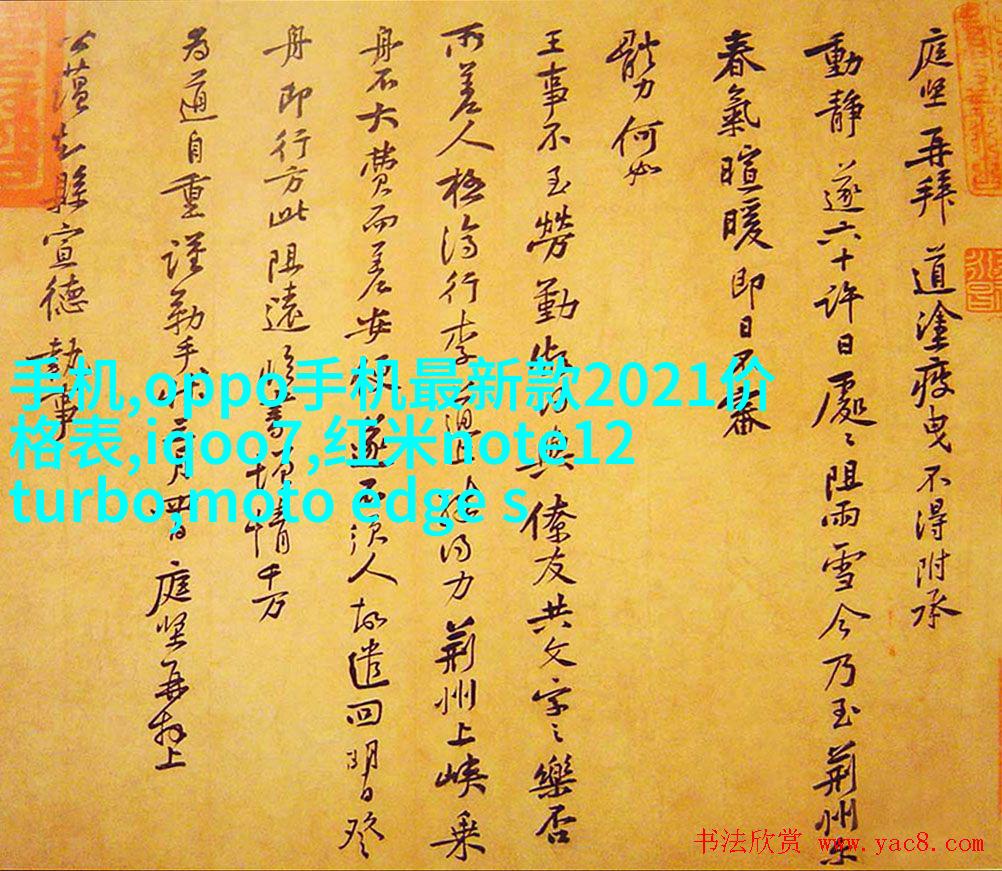 庭坚再拜道塗疲曳不得附承
動静遂六十許日處〻阻雨雪今乃至荆州
春氣暄暖即日不審
體力何如
王事不至勞勤 僚友共文字之樂否
所差人極濟行李 荆州上峡乘
舟不大費而差安穏遂不須人故遣回明日登
舟即行方此阻遠 增情千万
為道自重謹勒手 庭坚再拜上
宣德執事
手机,oppo手机最新款2021价
格表,iqoo7,红米note12
turbo,moto edge s
书法欣赏 www.yac8.com